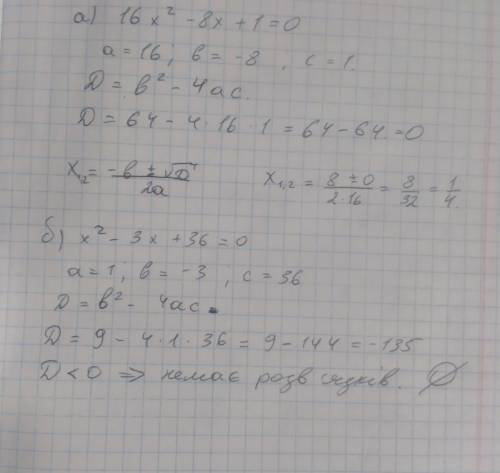 а) 16x² - 8x + 1 = 0
a = 16; в = -8, c = 1.
D = в² - 4ac.
D = 64 - 4·16·1 = 64 - 64 = 0
X₁,₂ = -в ± √D / 2a X₁,₂ = 8 ± 0 / 2·16 = 8/32 = 1/4.
б) x² - 3x + 36 = 0
a = 1; в = -3; c = 36
D = в² - 4ac.
D = 9 - 4·1·36 = 9 - 144 = -135
D < 0 ⇒ немає розв'язків. ∅